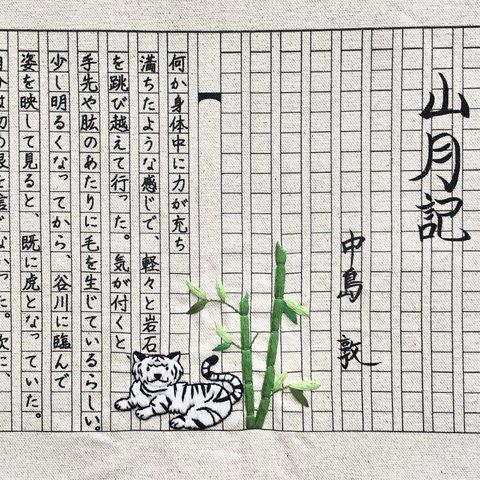 山月記
中島敦
何か身体中に力が充ち
満ちたような感じで、軽々と岩石
を跳び越えて行った。気が付くと、
手先や肱のあたりに毛を生じているらしい。
少し明るくなってから、谷川に臨んで
姿を映して見ると、既に虎となっていた。
自分は初め眼を信じなかった。次に、